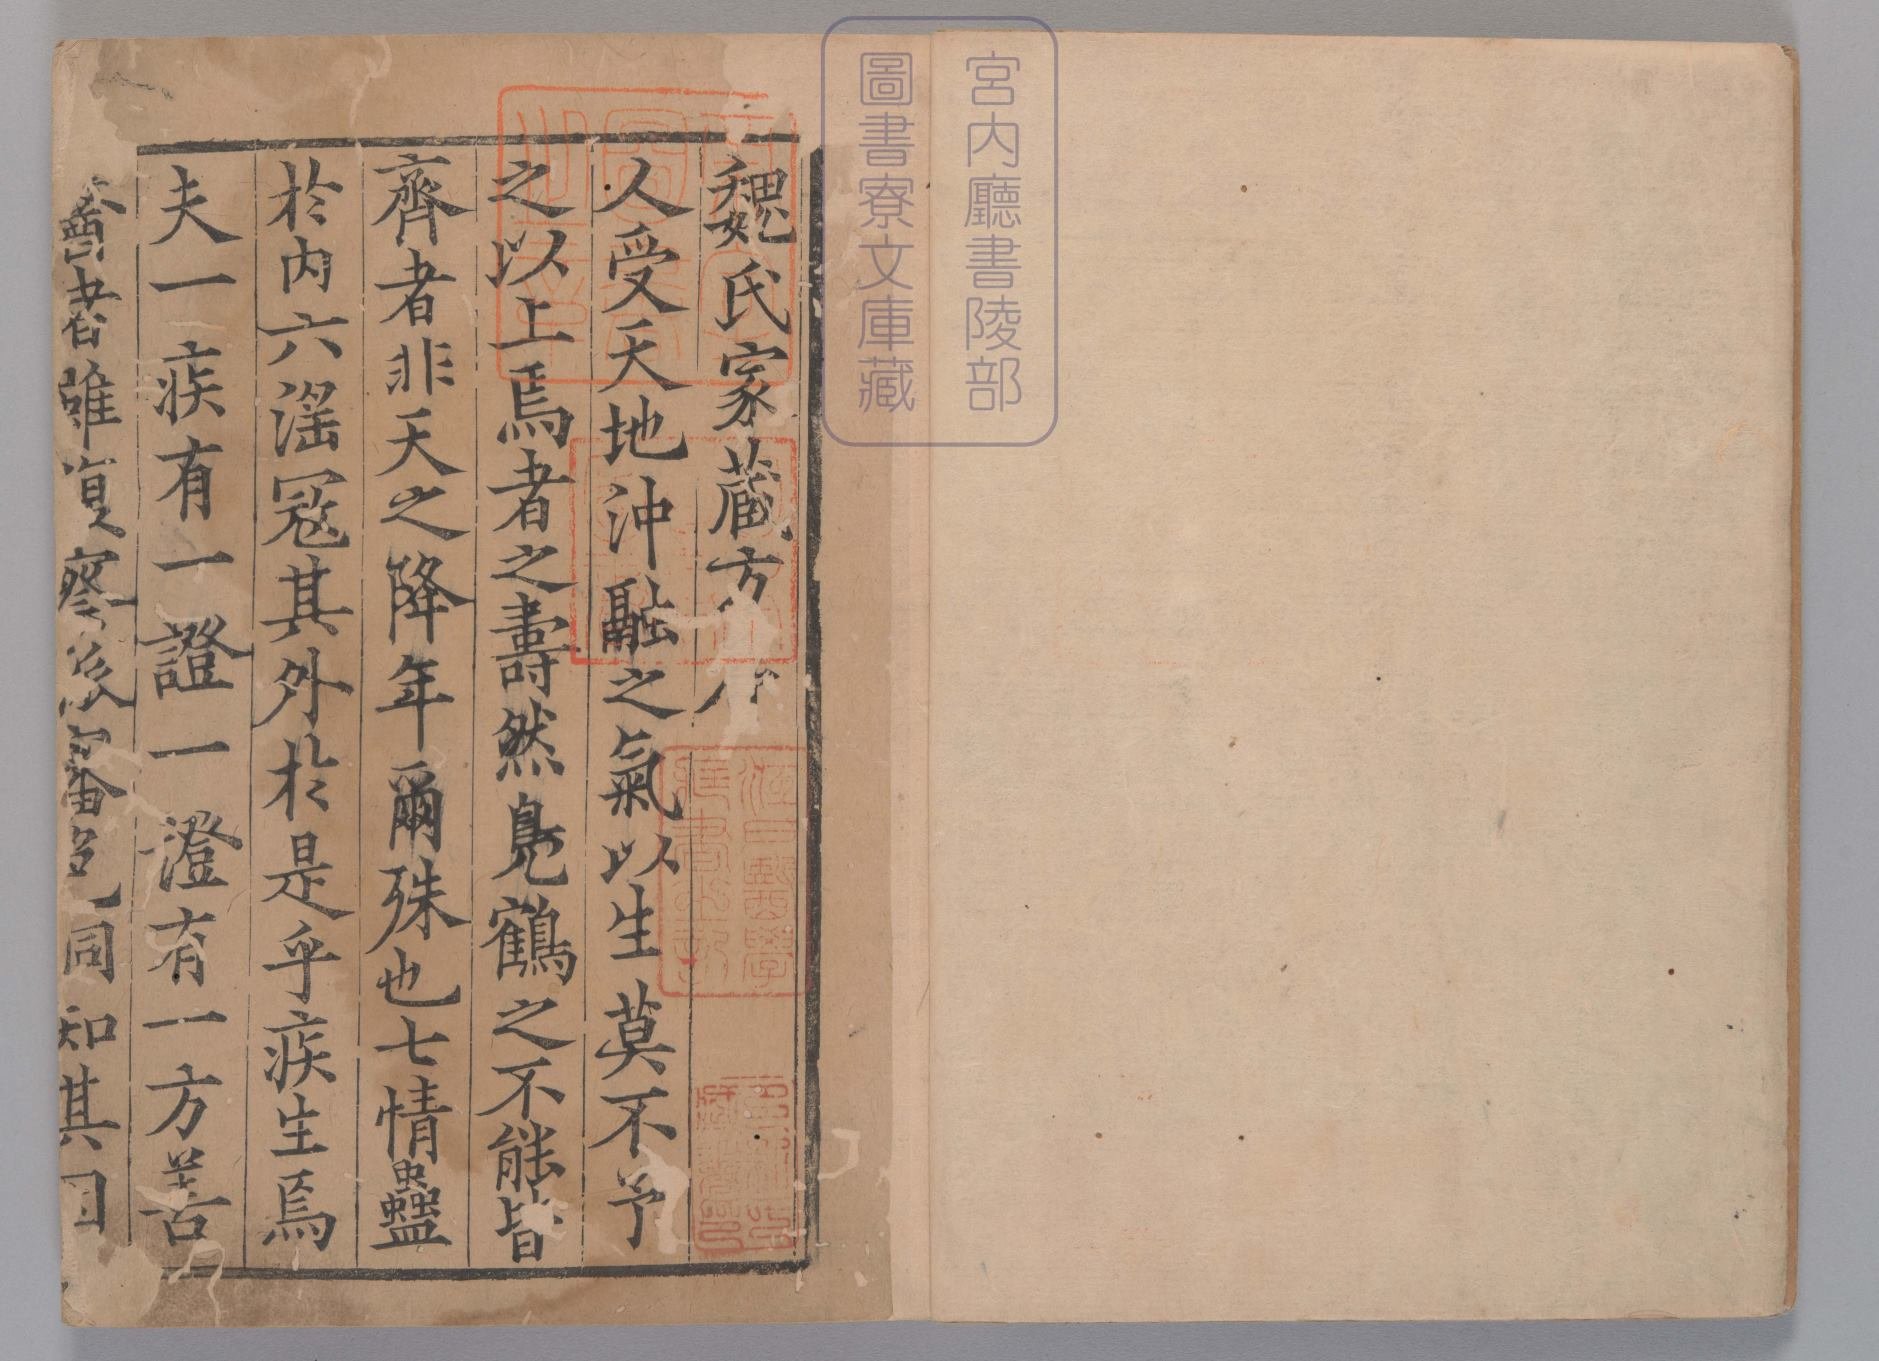 宮内廳書陵部
圖書寮文庫藏
魏氏家藏方序
人受天地沖融之氣以生莫不予
之以上焉者之壽然鳧鶴之不能皆
齊者非天之降年爾殊也七情蠱
於内六滛冦其外於是乎疾生焉
夫一疾有一證一澄有一方善
醫者雖貴察脉審色同知其因